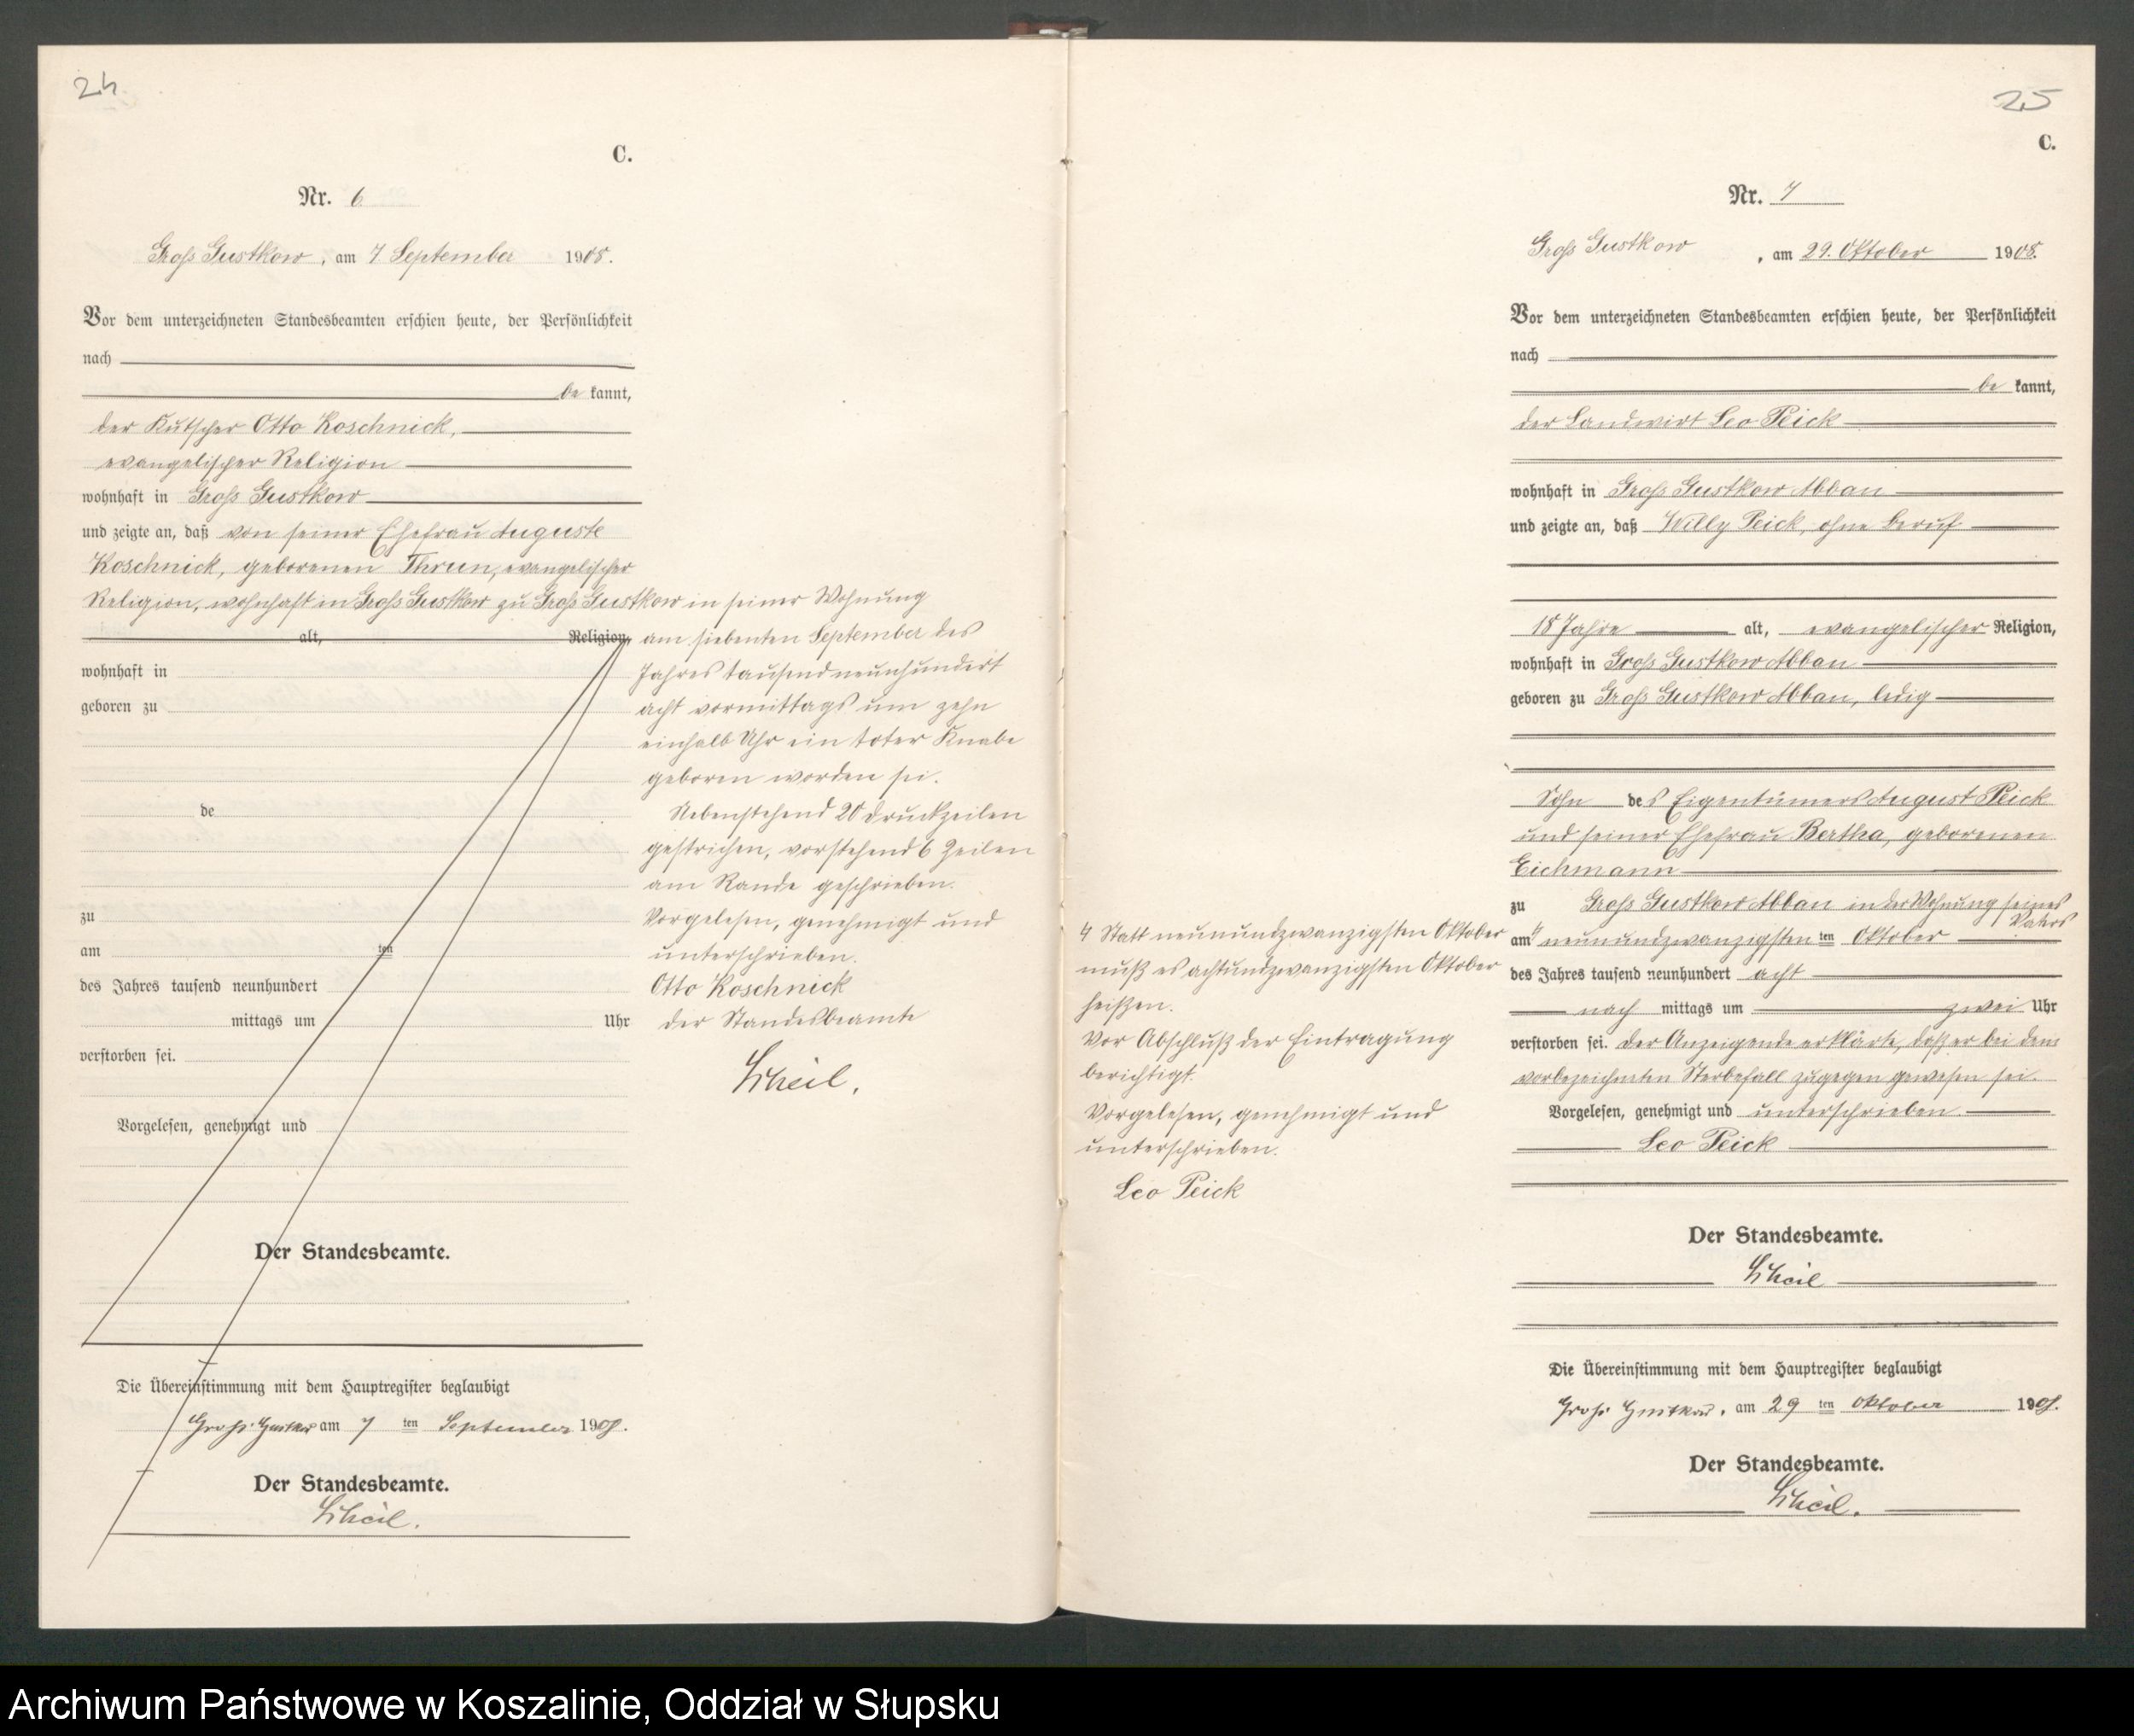 24
C.
Nr. 6
Groß Gustkow, am 7 September 1908.
Vor dem unterzeichneten Standesbeamten erschien heute, der Persönlichkeit
nach
be kannt,
der Kutscher Otto Koschnick,
evangelischer Religion
wohnhaft in Groß Gustkow
und zeigte an, daß von seiner Ehefrau Auguste
Koschnick, geborenen Thrun, evangelischer
Religion, wohnhaft in Groß Gustkow zu Groß Gustkow in seiner Wohnung
alt, Religion, am siebenten September des
wohnhaft in Jahres tausend neunhundert
geboren zu acht vormittags um zehn
einhalb Uhr ein toter Knabe
geboren worden sei.
de Nebenstehend 20 Druckzeilen
gestrichen, vorstehend 6 Zeilen
am Rande geschrieben.
zu Vorgelesen, genehmigt und
am ten unterschrieben.
des Jahres tausend neunhundert Otto Koschnick
mittags um Uhr der Standesbeamte
verstorben sei.
Scheil.
Vorgelesen, genehmigt und
Der Standesbeamte.
Die Übereinstimmung mit dem Hauptregister beglaubigt
Groß Gustkow am 7 ten September 1908.
Der Standesbeamte.
Scheil.
25
C.
Nr. 7
Groß Gustkow, am 29. Oktober 1908.
Vor dem unterzeichneten Standesbeamten erschien heute, der Persönlichkeit
nach
be kannt,
der Landwirt Leo Peick
wohnhaft in Groß Gustkow Abbau
und zeigte an, daß Willy Peick, ohne Beruf
18 Jahre alt, evangelischer Religion,
wohnhaft in Groß Gustkow Abbau
geboren zu Groß Gustkow Abbau, ledig
Sohn des Eigentümers August Peick
und seiner Ehefrau Bertha, geborenen
Eichmann
zu Groß Gustkow Abbau in der Wohnung seines
Vaters
am 4 neunundzwanzigsten ten Oktober
des Jahres tausend neunhundert acht
nach mittags um zwei Uhr
verstorben sei. Der Anzeigende erklärte, daß er bei dem
vorbezeichneten Sterbefall zugegen gewesen sei.
Vorgelesen, genehmigt und unterschrieben.
Leo Peick
4 Statt neunundzwanzigsten Oktober
muß es achtundzwanzigsten Oktober
heißen.
Vor Abschluß der Eintragung
berichtigt.
Vorgelesen, genehmigt und
unterschrieben.
Leo Peick
Der Standesbeamte.
Scheil
Die Übereinstimmung mit dem Hauptregister beglaubigt
Groß Gustkow, am 29 ten Oktober 1908.
Der Standesbeamte.
Scheil.
Archiwum Państwowe w Koszalinie, Oddział w Słupsku